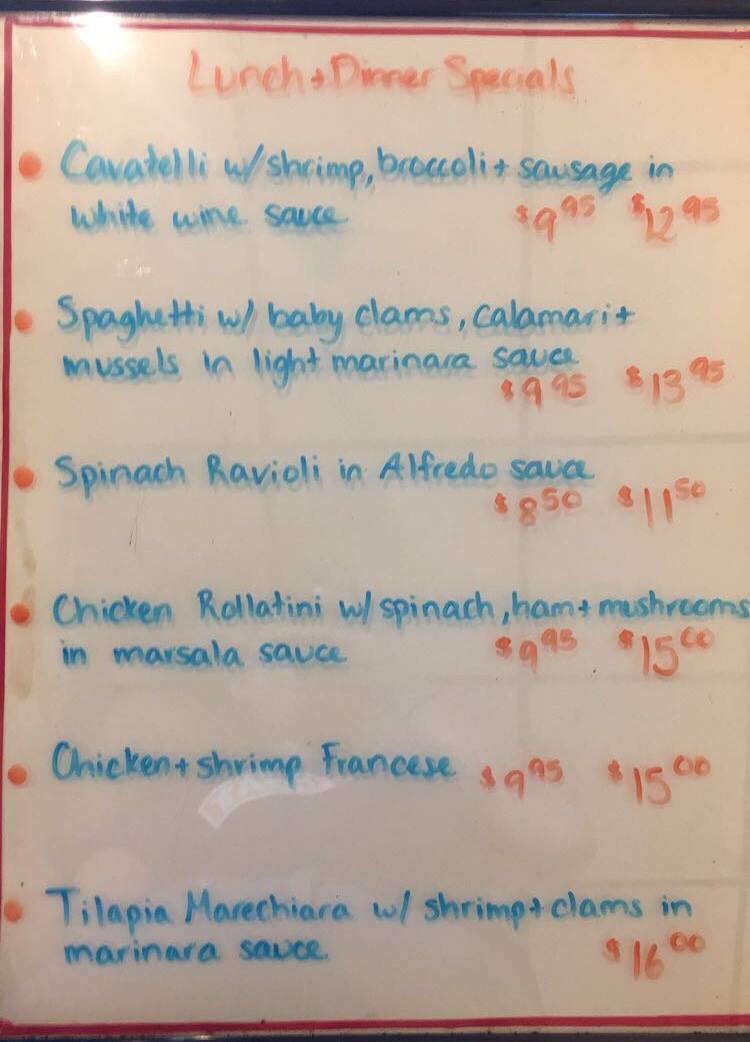 Lunch + Dinner Specials
Cavatelli w/ shrimp, broccoli + sausage in
white wine sauce $9.95 $12.95
Spaghetti w/ baby clams, calamari +
mussels in light marinara sauce
$9.95 $13.95
Spinach Ravioli in Alfredo sauce
$8.50 $11.50
Chicken Rollatini w/ spinach, ham + mushrooms
in marsala sauce $9.95 $15.00
Chicken + shrimp Francese $9.95 $15.00
Tilapia Marechiara w/ shrimp + clams in
marinara sauce $16.00